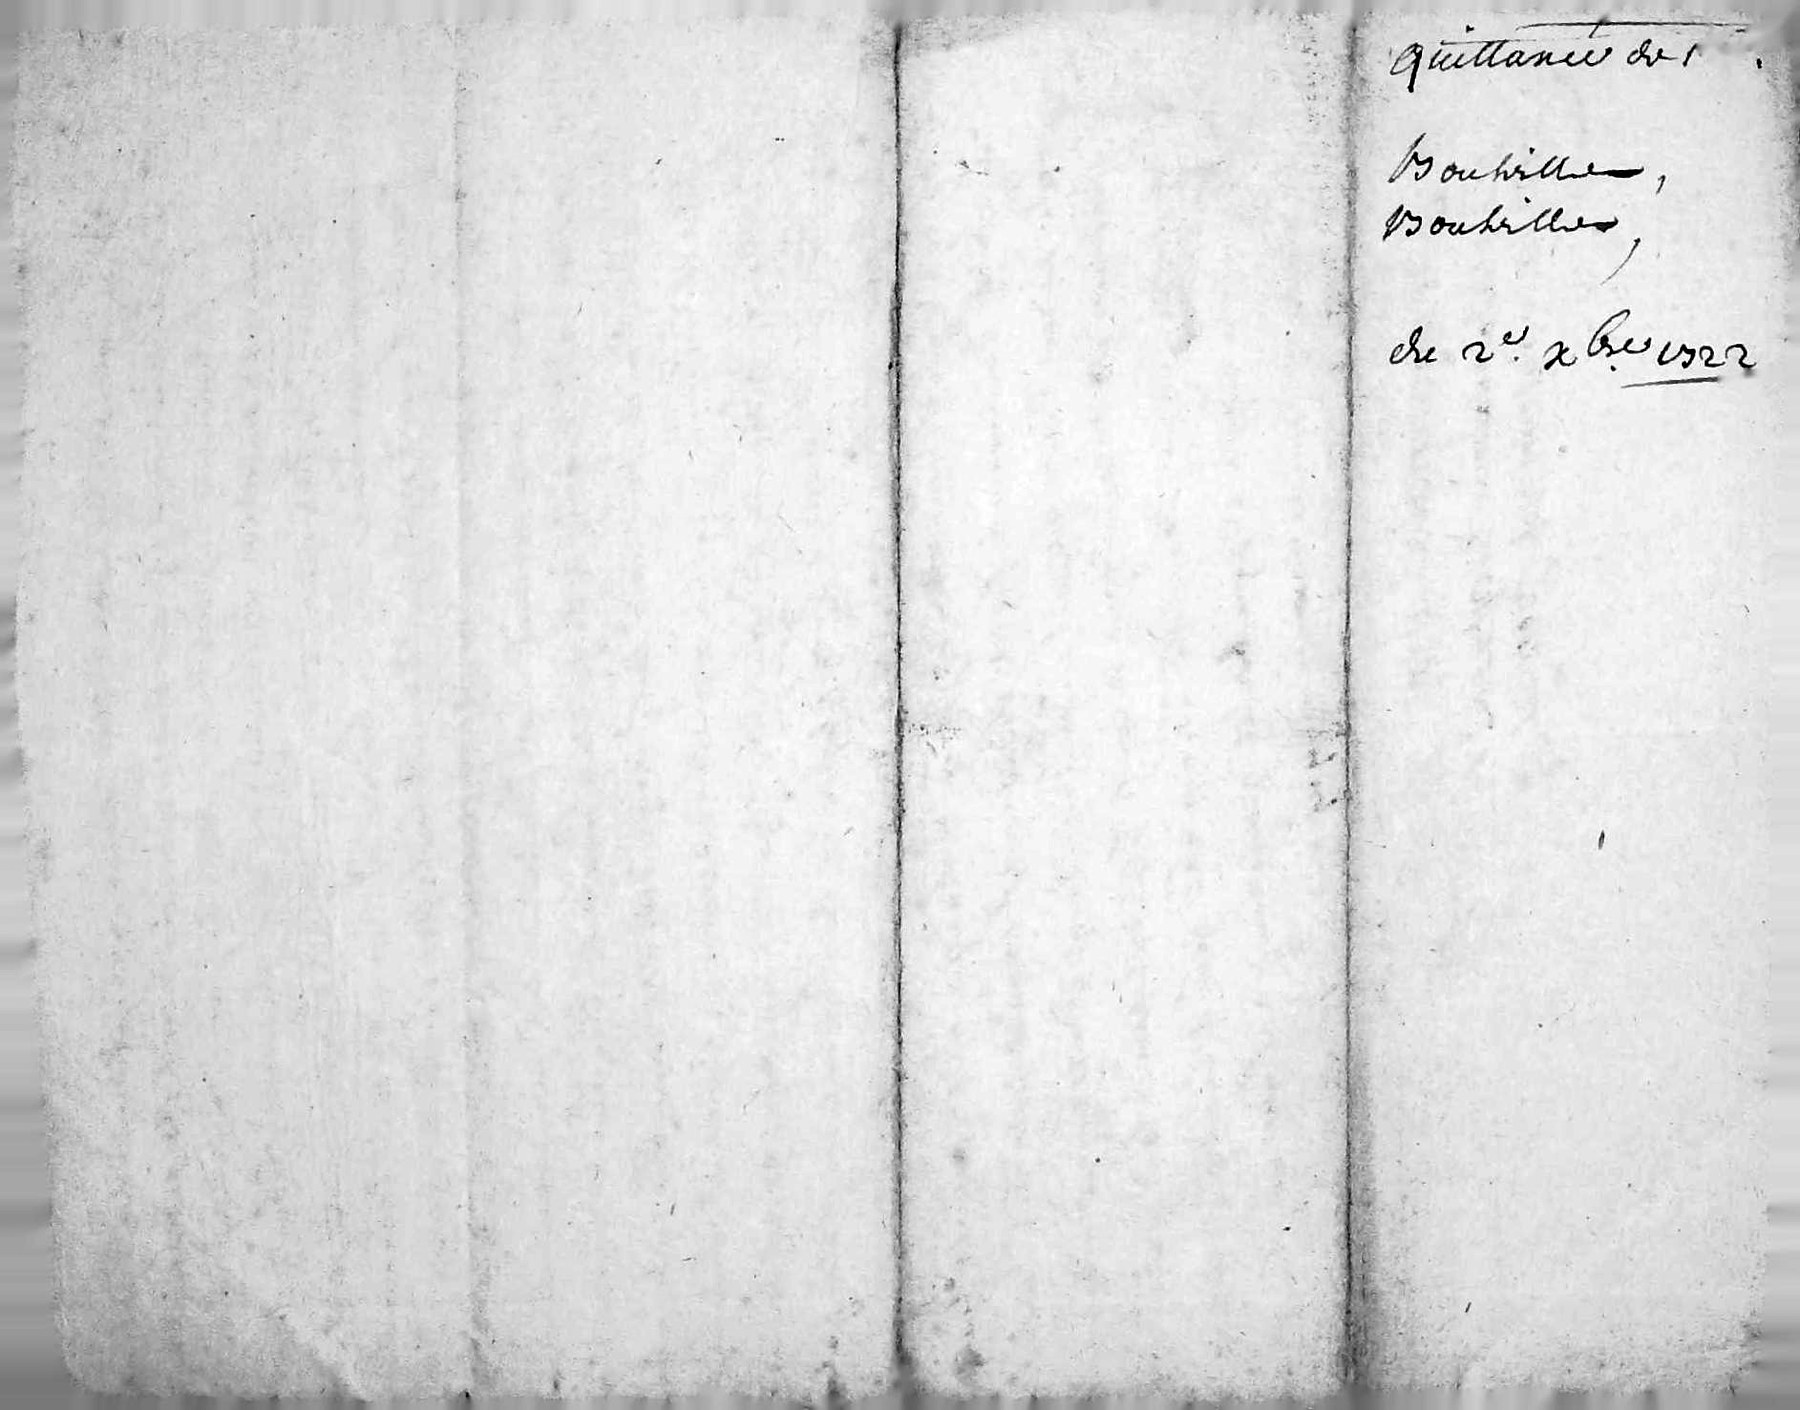 Quittance de
Bouhillier,
Bouhillier,
du 2e. xbre. 1722